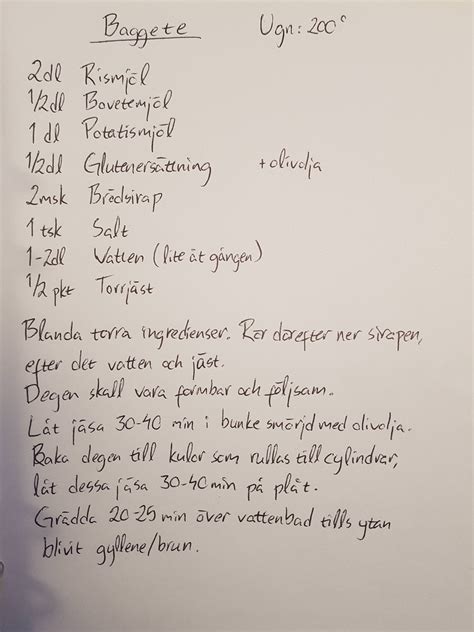 Baggete Ugn: 200°
2dl Rismjöl
1/2dl Bovetemjöl
1 dl Potatismjöl
1/2dl Glutenersättning + olivolja
2msk Brödsirap
1 tsk Salt
1-2dl Vatten (lite åt gången)
1/2 pkt Torrjäst
Blanda torra ingredienser. Rör därefter ner sirapen,
efter det vatten och jäst.
Degen skall vara formbar och följsam.
Låt jäsa 30-40 min i bunke smörjd med olivolja.
Baka degen till kulor som rullas till cylindrar,
låt dessa jäsa 30-40 min på plåt.
Grädda 20-25 min över vattenbad tills ytan
blivit gyllene/brun.